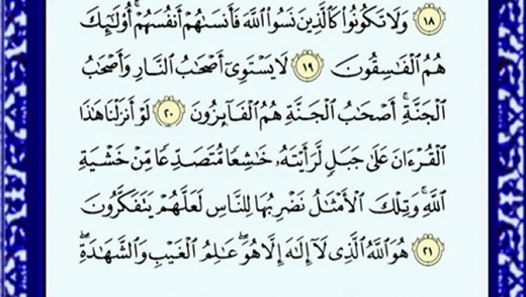 ١٨ وَلَا تَكُونُوا۟ كَٱلَّذِينَ نَسُوا۟ ٱللَّهَ فَأَنسَىٰهُمْ أَنفُسَهُمْ ۚ أُو۟لَـٰٓئِكَ
هُمُ ٱلْفَـٰسِقُونَ ١٩ لَا يَسْتَوِىٓ أَصْحَـٰبُ ٱلنَّارِ وَأَصْحَـٰبُ
ٱلْجَنَّةِ ۚ أَصْحَـٰبُ ٱلْجَنَّةِ هُمُ ٱلْفَآئِزُونَ ٢٠ لَوْ أَنزَلْنَا هَـٰذَا
ٱلْقُرْءَانَ عَلَىٰ جَبَلٍ لَّرَأَيْتَهُۥ خَـٰشِعًا مُّتَصَدِّعًا مِّنْ خَشْيَةِ
ٱللَّهِ ۚ وَتِلْكَ ٱلْأَمْثَـٰلُ نَضْرِبُهَا لِلنَّاسِ لَعَلَّهُمْ يَتَفَكَّرُونَ
٢١ هُوَ ٱللَّهُ ٱلَّذِى لَآ إِلَـٰهَ إِلَّا هُوَ ۖ عَـٰلِمُ ٱلْغَيْبِ وَٱلشَّهَـٰدَةِ ۖ